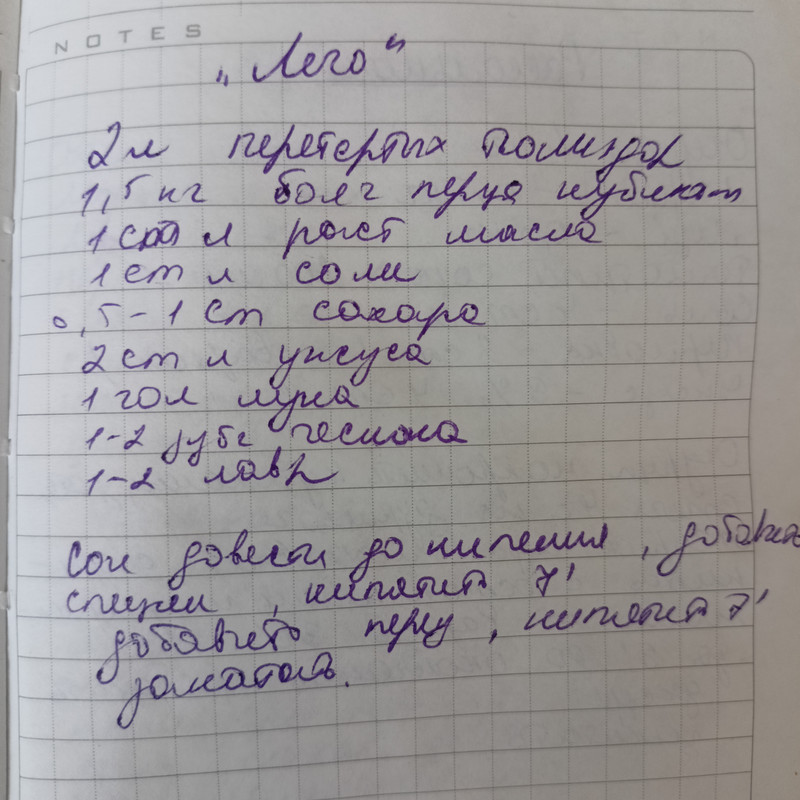 NOTES
„Лего"
2 л перетертых помидор
1,5 кг болг перца кубикам
1 ст л раст масла
1 ст л соли
0,5-1 ст сахара
2 ст л уксуса
1 гол лука
1-2 зубч чеснока
1-2 лавр
Сок довести до кипения, добавить
специи, кипятить 7'
добавить перец, кипятить 7'
закатать.